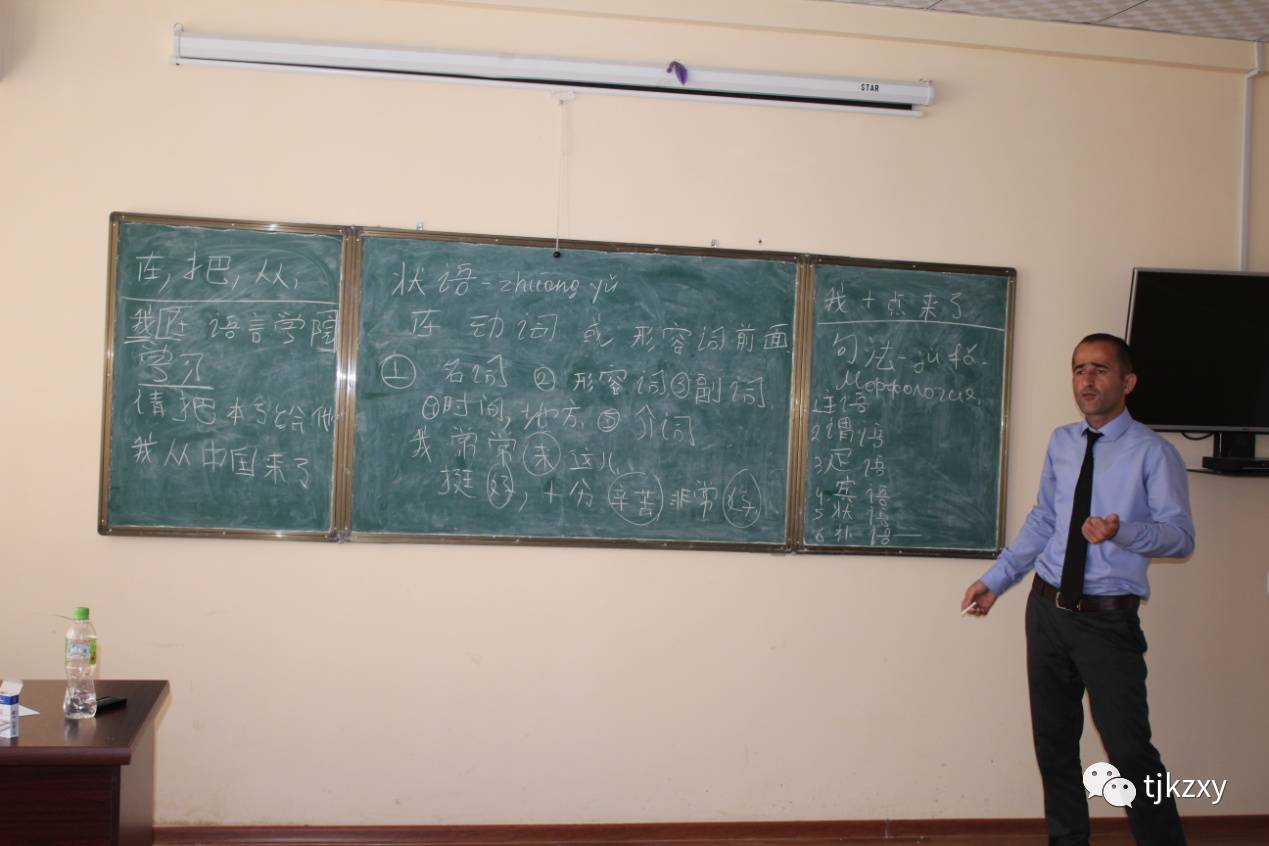 STAR
在, 把, 从,
我在 语言学院
学习
请把 本子给他
我从中国来了
状语 - zhuāng yǔ
在 动词 或 形容词前面
① 名词 ② 形容词 ③ 副词
④ 时间, 地方 ⑤ 介词
我 常常 来 这儿
挺 好, 十分 辛苦 非常 好
我 十点 来了...
句法 - jù fǎ -
Морфология,
语
2 谓语
3. 定语
4. 宾语
5 状语
6 补语 —
tjkzxy